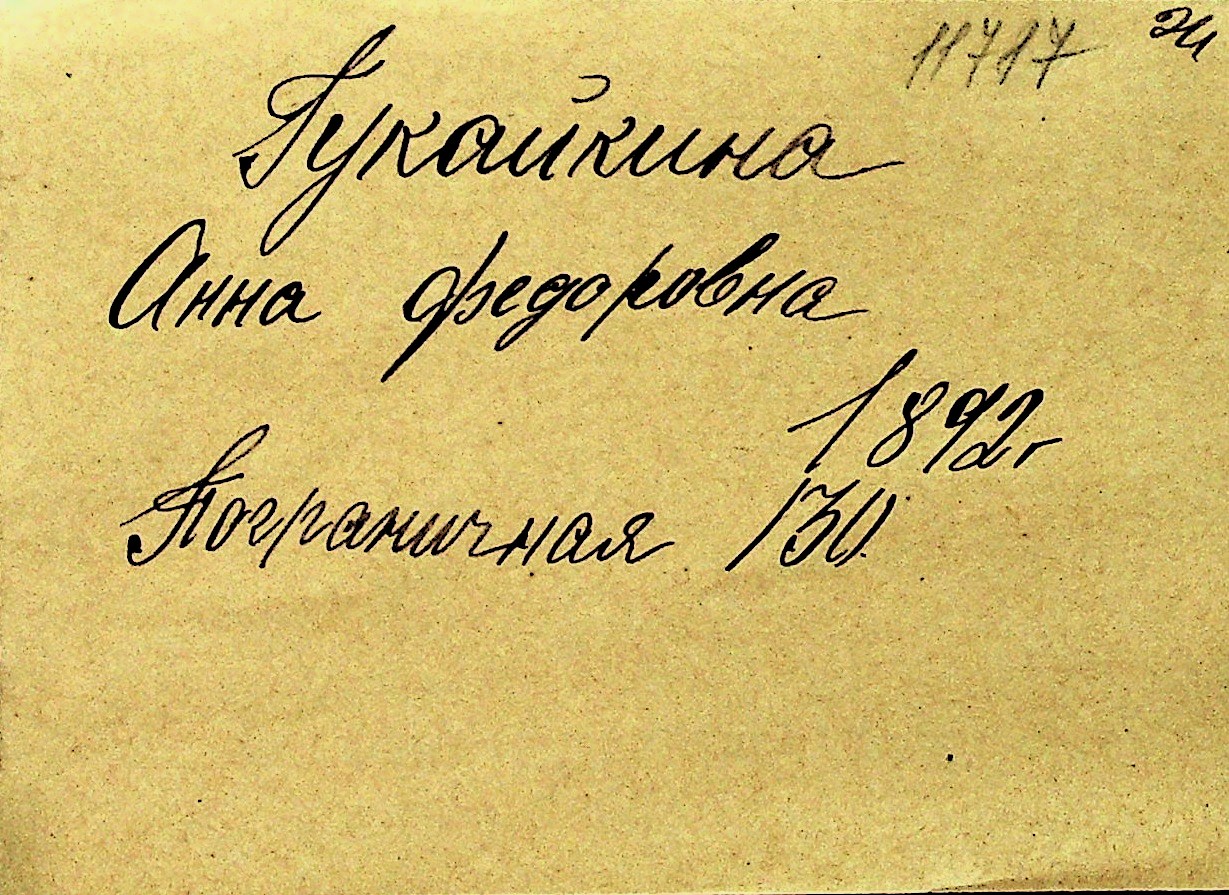 11717
Гукайкина
Анна федоровна
1892г
Пограничная 130.